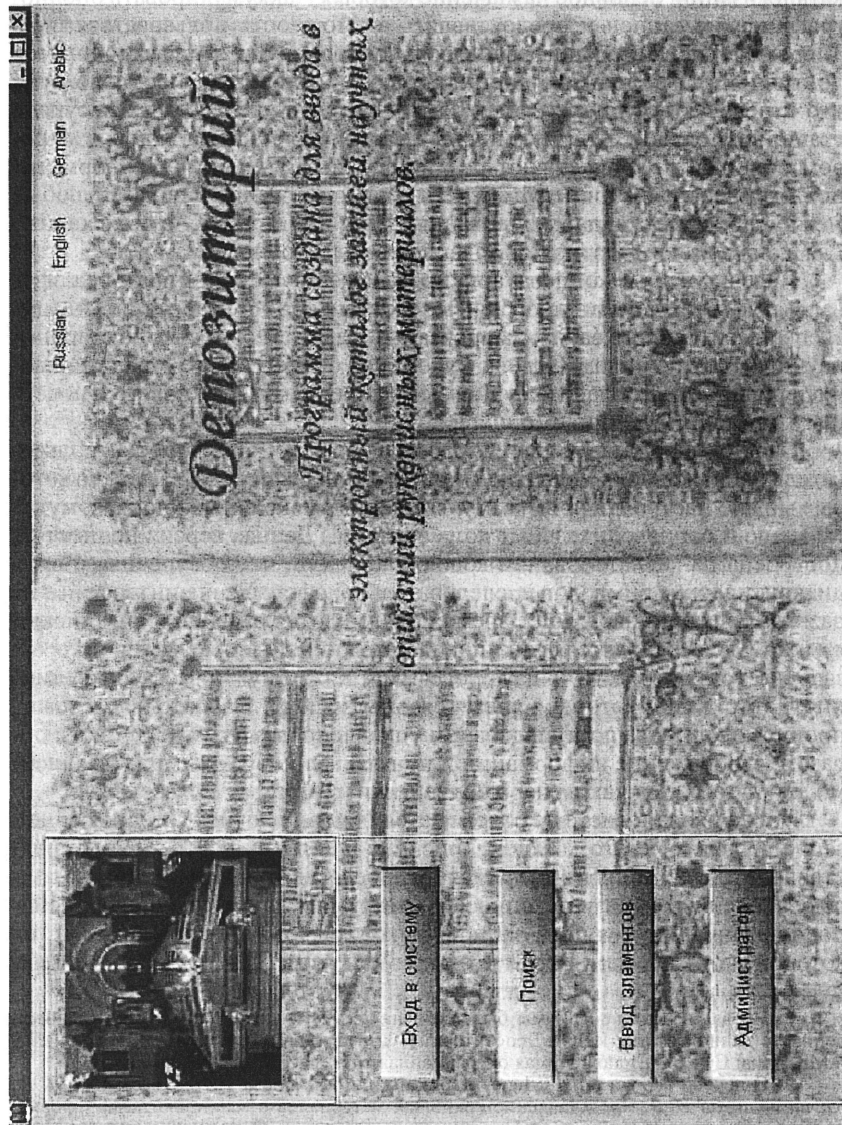 Russian English German Arabic
Депозитарий
Программа создана для ввода в
электронный каталог записей научных
описаний рукописных материалов.
Вход в систему
Поиск
Ввод элементов
Администратер